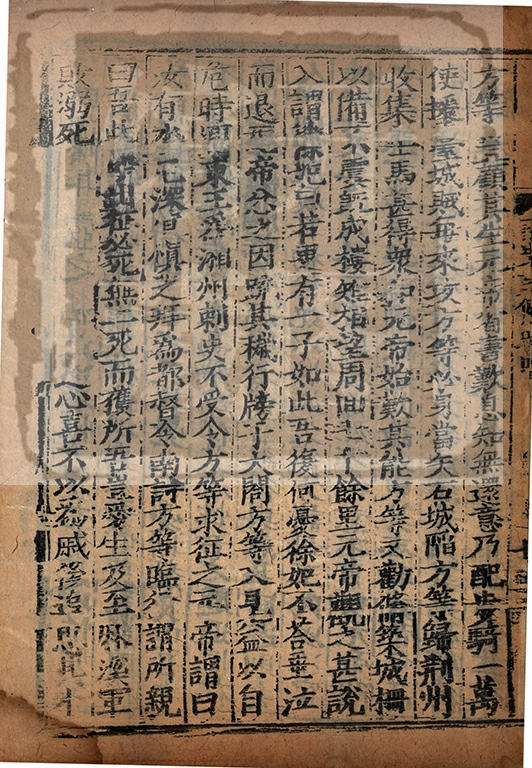 方等 豈顧其生元帝省書歎息知無還意乃配步騎一萬
使援臺城賊每來攻方等必身當矢石城陷方等歸荆州
收集士馬甚得衆和元帝始歎其能方等又勸修築城柵
以備不虞旣成樓雉相望周回七十餘里元帝觀之甚說
入謂徐妃曰若更有一子如此吾復何憂徐妃不荅垂泣
而退元帝忿之因䟽其穢行牓于大閤方等入見益以自
危時河東王爲湘州刺史不受令方等求征之元帝謂曰
汝有水厄深宜愼之拜爲都督令南討方等臨行謂所親
曰吾此 出征必死無二死而獲所吾豈愛生及至麻溪軍
敗溺死 心喜不以爲戚後追思其才